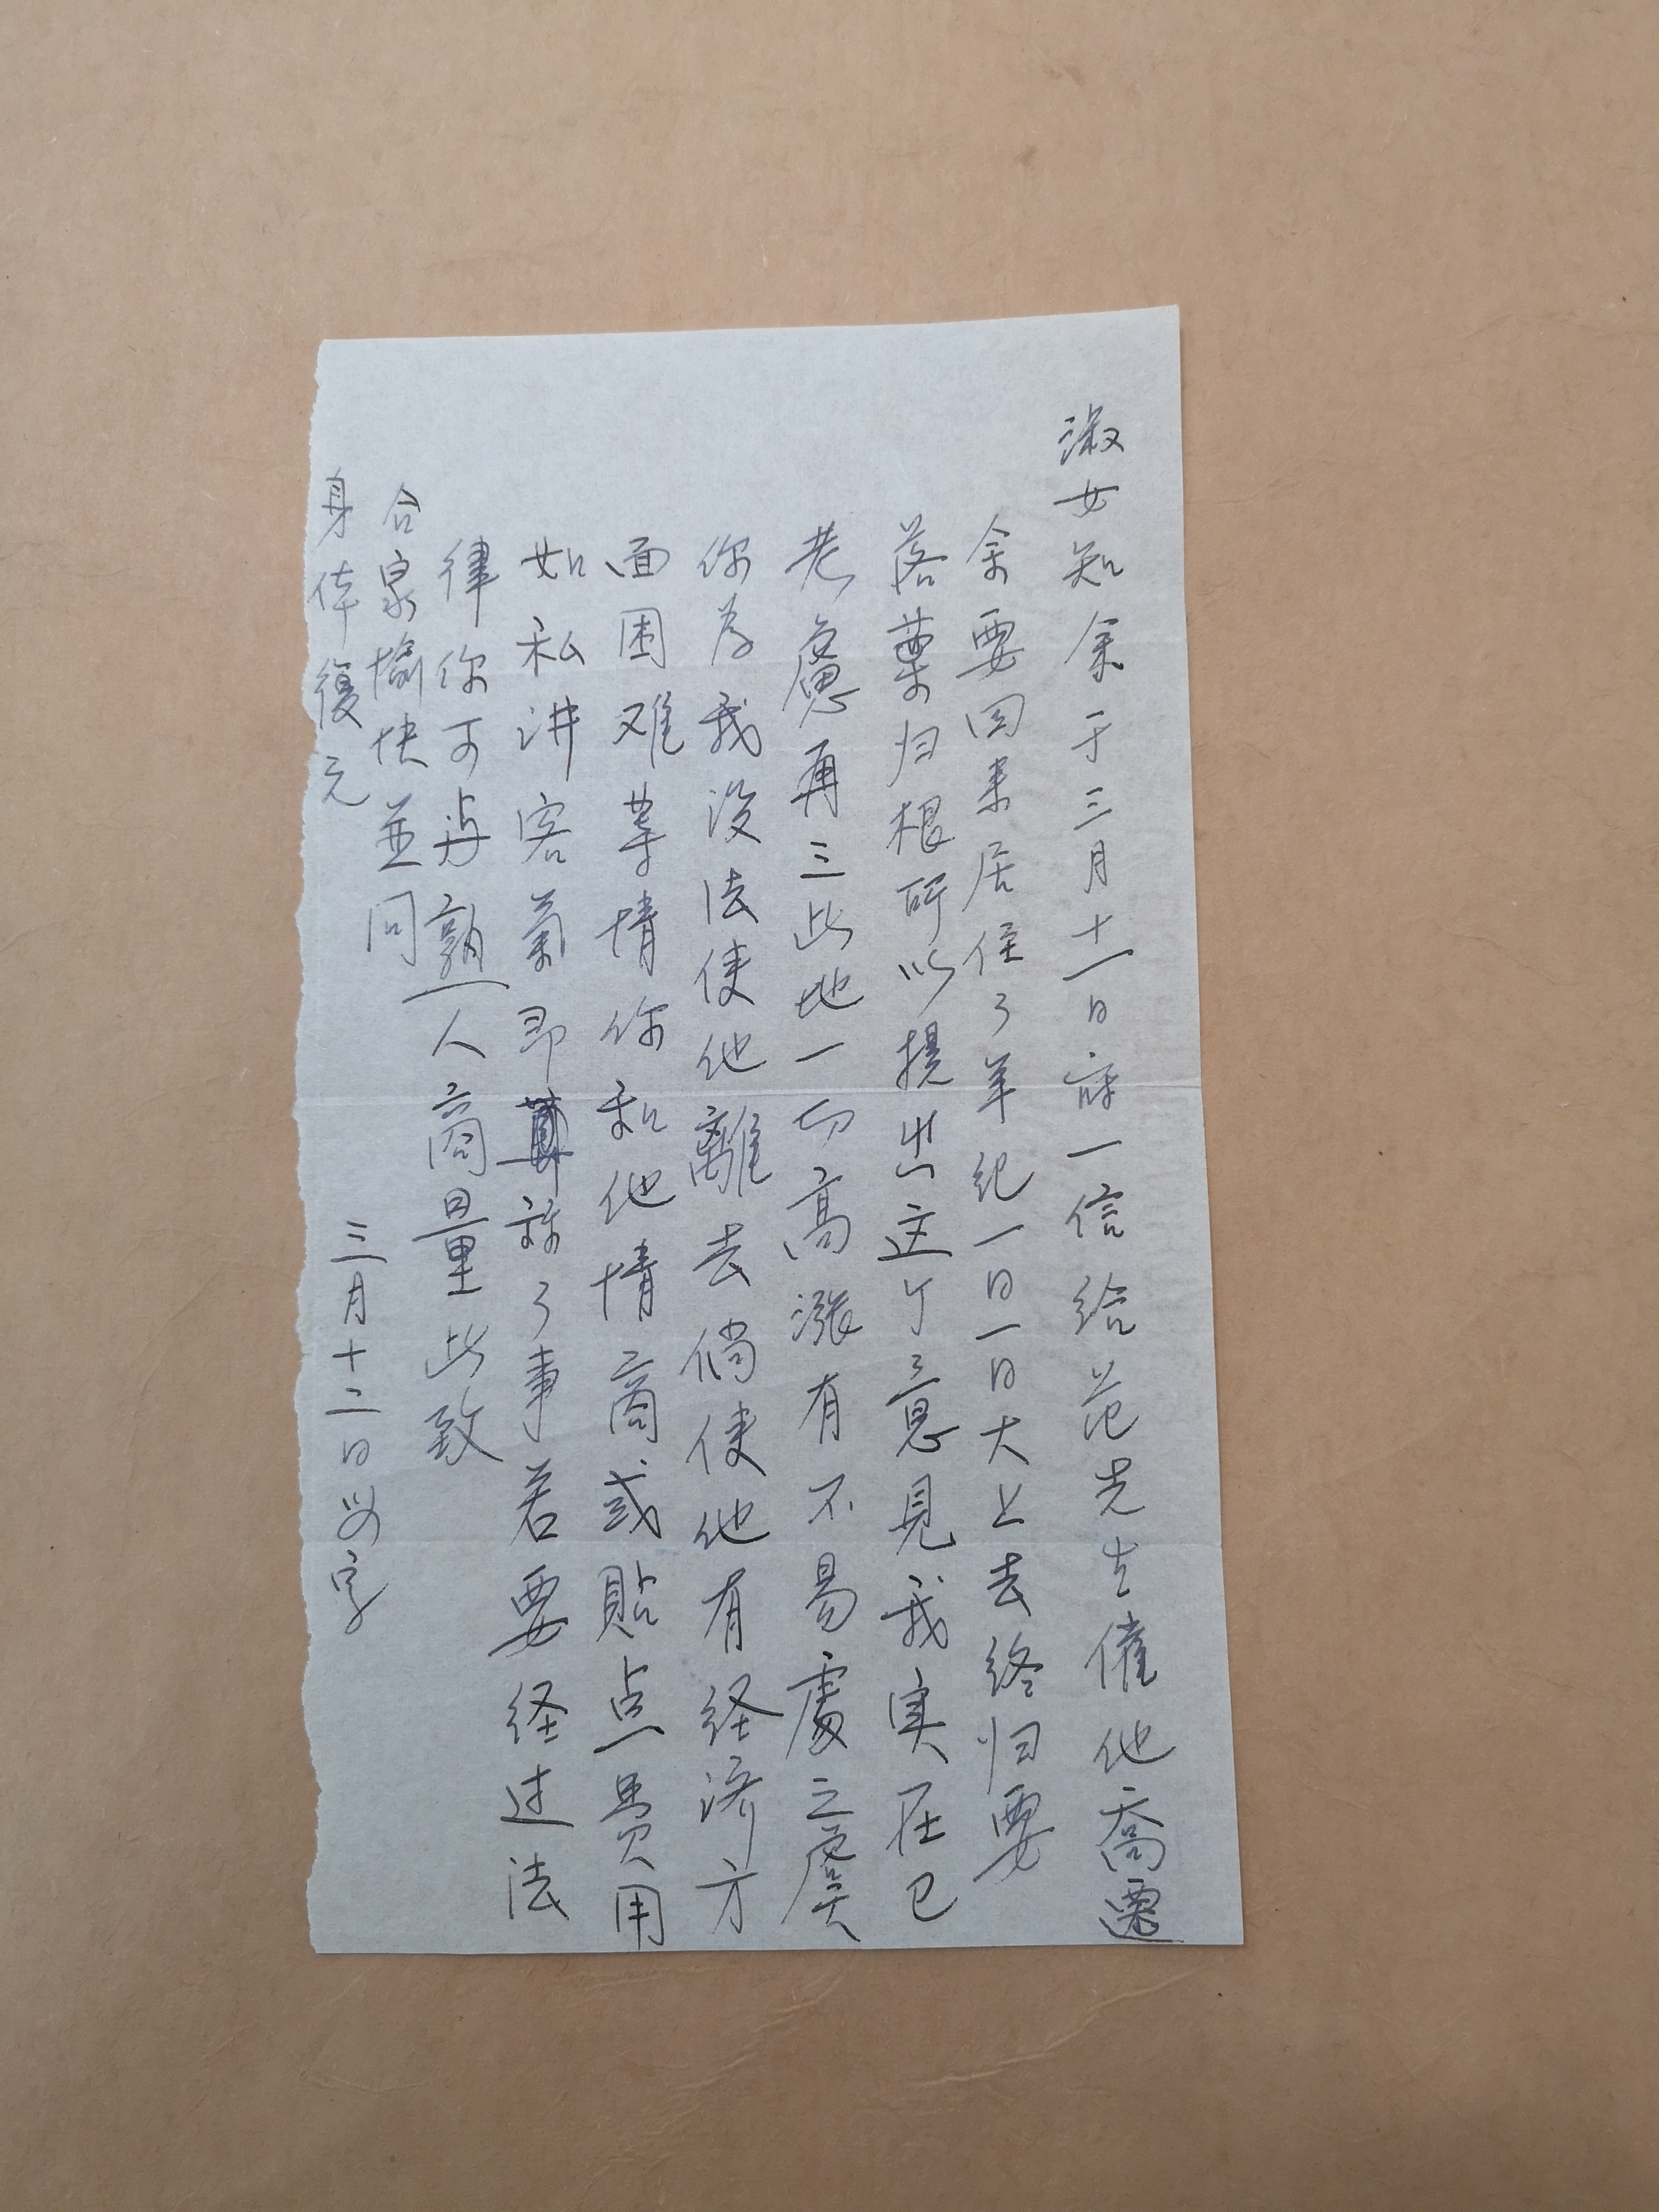 淑女知余于三月十一日寄一信给范先生催他喬遷
余要回来居住了年纪一日一日大上去终归要
落葉归根所以提出这个意見我实在已
老慮再三此地一切高漲有不易處之慮
你为我设法使他離去倘使他有経济方
面困难等情你和他情商或貼点費用
如私讲客氣即算了事若要经过法
律你可与熟人商量此致
合家愉快並问
身体復元
三月十二日 字